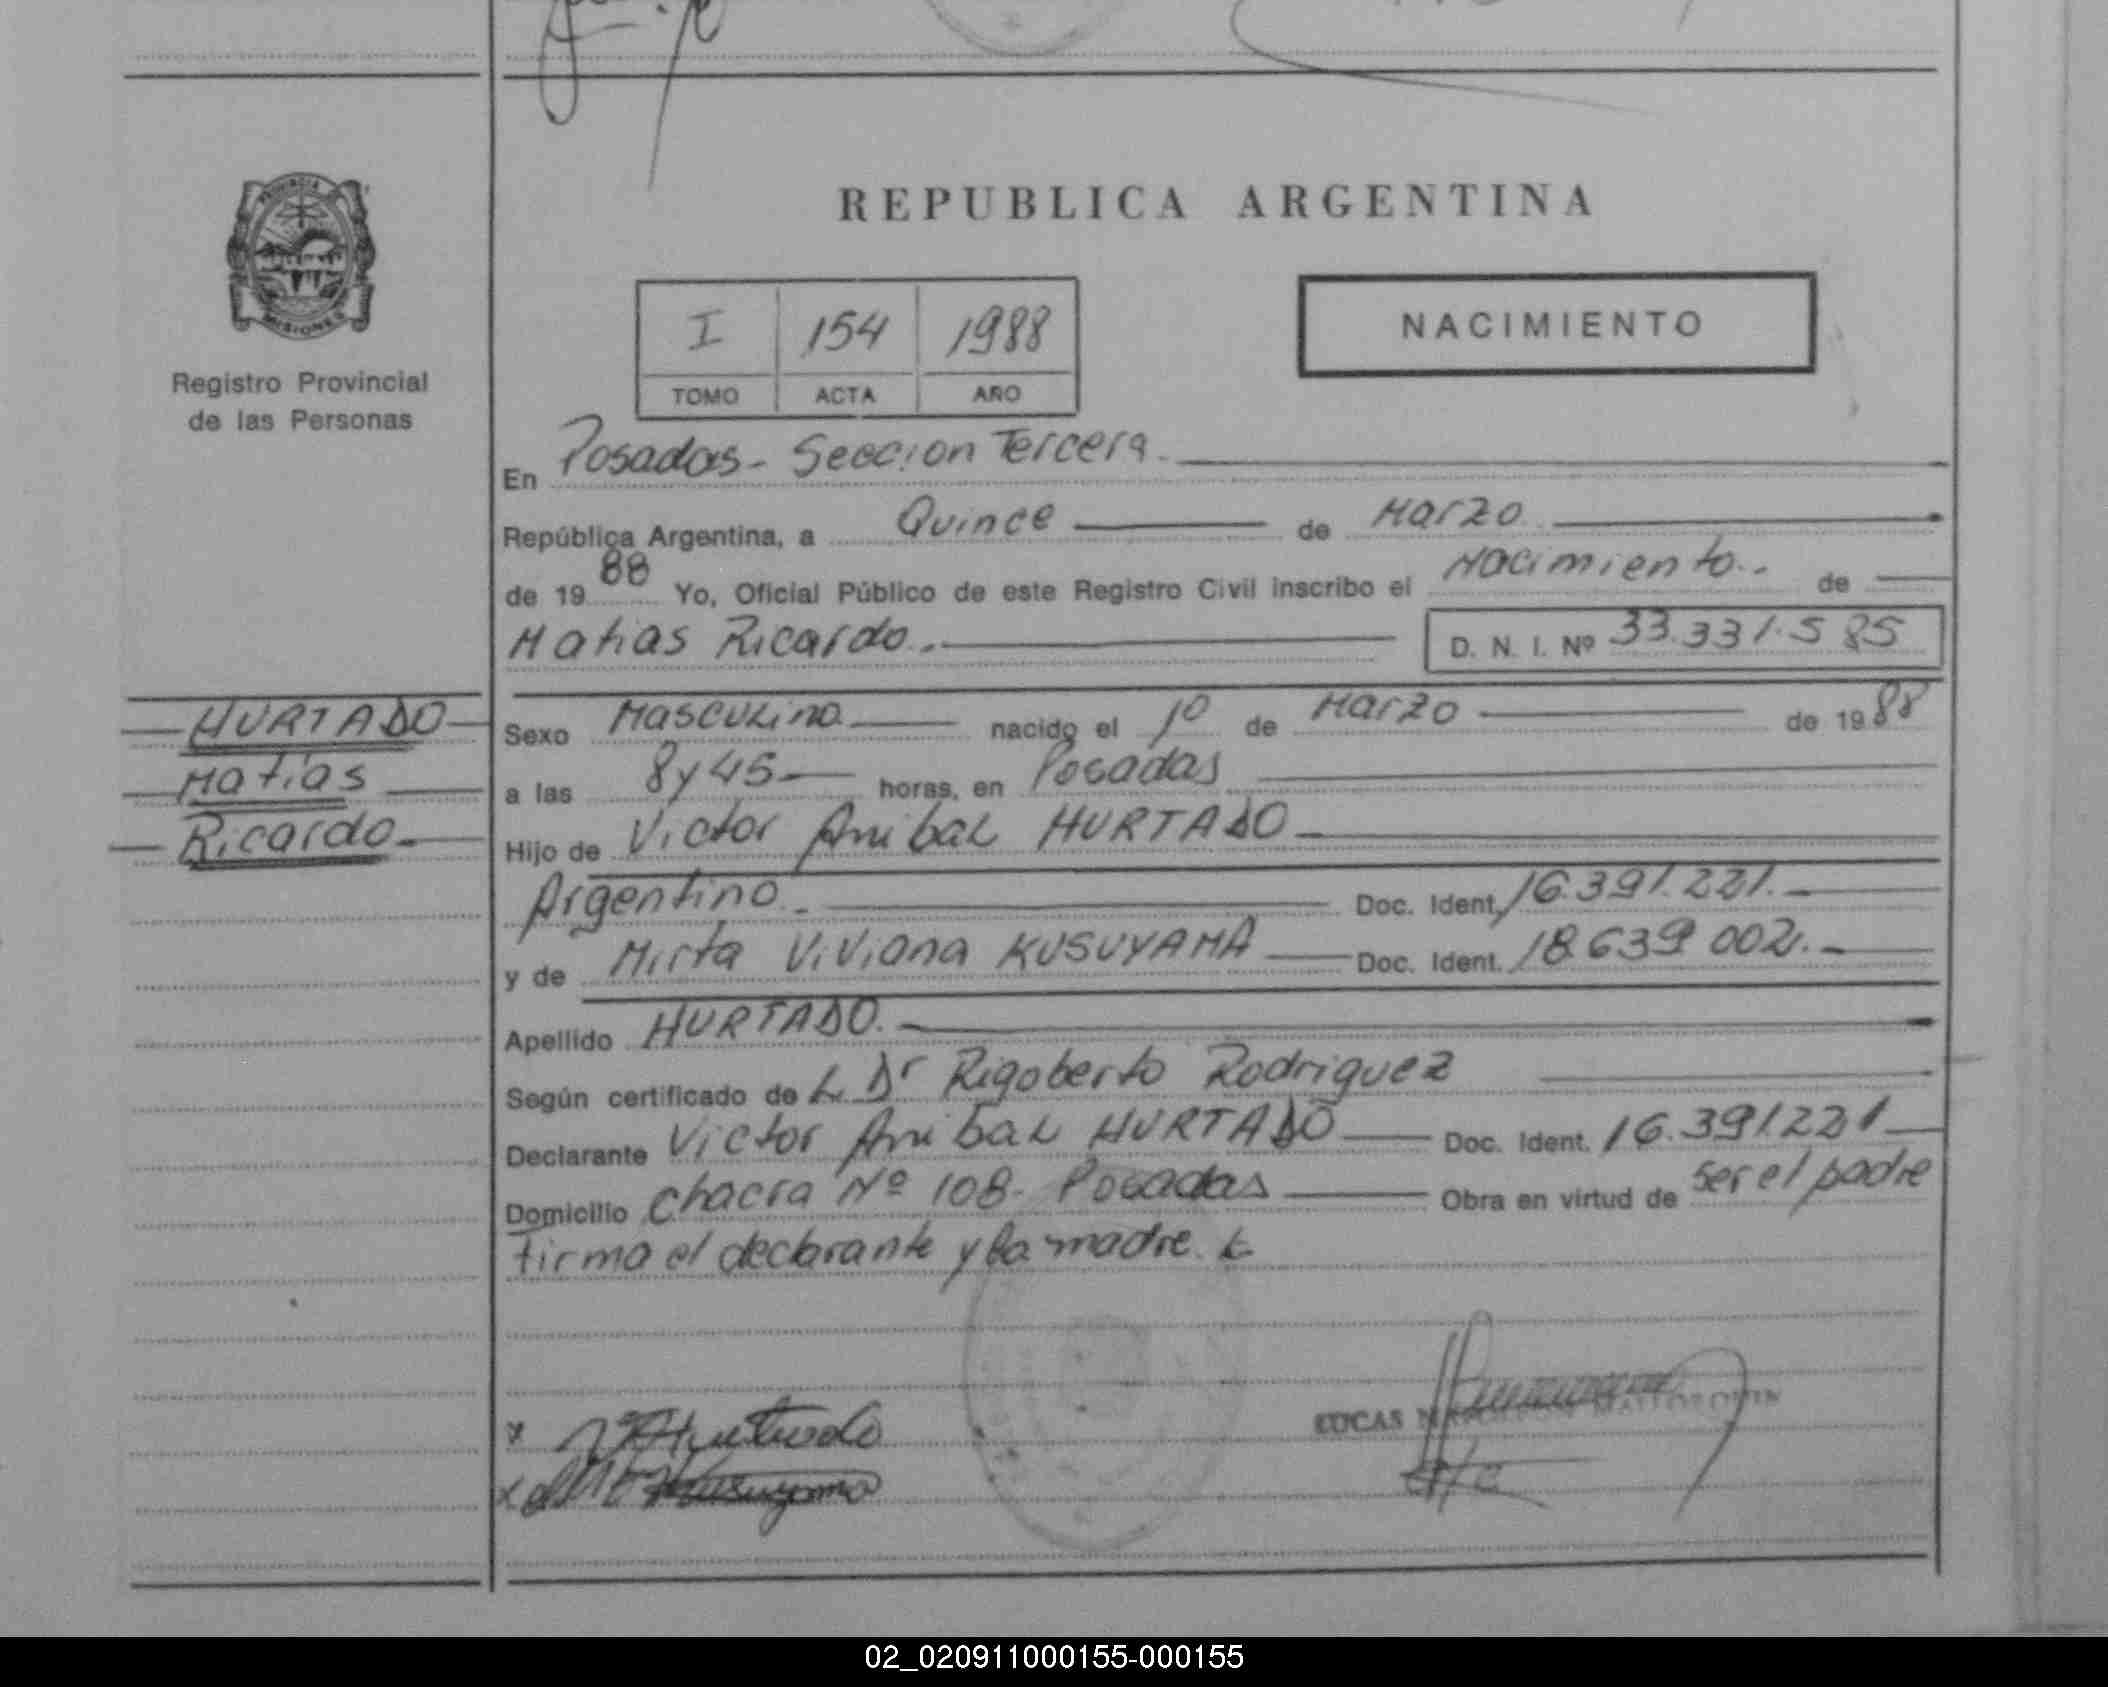 REPUBLICA ARGENTINA
PROVINCIA
MISIONES
Registro Provincial
de las Personas
I 154 1988
TOMO ACTA AÑO
NACIMIENTO
En Posadas - Seccion Tercera
República Argentina, a Quince de Marzo
de 1988 Yo, Oficial Público de este Registro Civil inscribo el Nacimiento de
Matias Ricardo D. N. I. Nº 33.331.585
HURTADO
Matias
Ricardo
Sexo Masculino nacido el 1º de Marzo de 1988
a las 8 y 45 horas, en Posadas
Hijo de Victor Anibal HURTADO
Argentino Doc. Ident. 16.391.221.
y de Mirta Viviana KUSUYAMA Doc. Ident. 18.639 002.
Apellido HURTADO.
Según certificado de L Dr Rigoberto Rodriguez
Declarante Victor Anibal HURTADO Doc. Ident. 16.391221
Domicilio chacra Nº 108. Posadas Obra en virtud de ser el padre
firma el declarante y la madre.
x Hurtado
x Kusuyama
LUCAS NAPOLEON MALLORQUIN
02_020911000155-000155